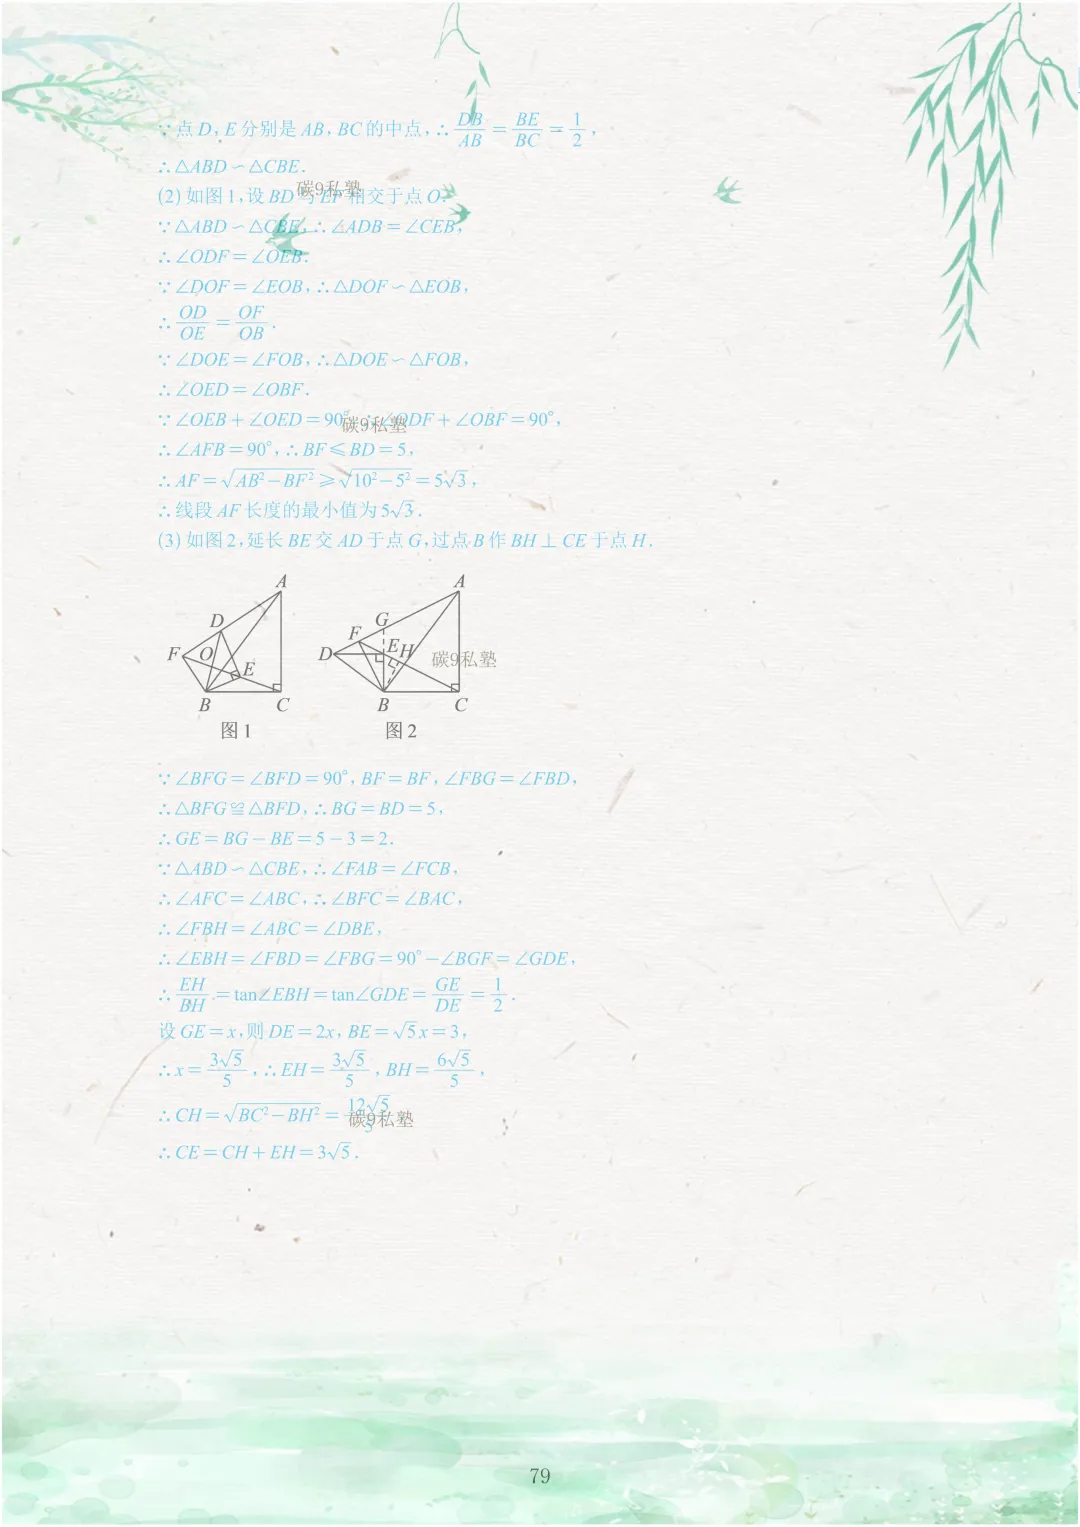 ∵点D,E分别是AB,BC的中点,∴DB/AB=BE/BC=1/2,
∴△ABD∽△CBE.
(2)如图1,设BD与EF相交于点O.
碳9私塾
∵△ABD∽△CBE,∴∠ADB=∠CEB,
∴∠ODF=∠OEB.
∵∠DOF=∠EOB,∴△DOF∽△EOB,
∴OD/OE=OF/OB.
∵∠DOE=∠FOB,∴△DOE∽△FOB,
∴∠OED=∠OBF.
∵∠OEB+∠OED=90°,∴∠ODF+∠OBF=90°,
碳9私塾
∴∠AFB=90°,∴BF≤BD=5,
∴AF=√(AB²-BF²)≥√(10²-5²)=5√3,
∴线段AF长度的最小值为5√3.
(3)如图2,延长BE交AD于点G,过点B作BH⊥CE于点H.
A
D
F O
E
B C
图1
A
G
F
D E H
B C
图2
碳9私塾
∵∠BFG=∠BFD=90°,BF=BF,∠FBG=∠FBD,
∴△BFG≌△BFD,∴BG=BD=5,
∴GE=BG-BE=5-3=2.
∵△ABD∽△CBE,∴∠FAB=∠FCB,
∴∠AFC=∠ABC,∴∠BFC=∠BAC,
∴∠FBH=∠ABC=∠DBE,
∴∠EBH=∠FBD=∠FBG=90°-∠BGF=∠GDE,
∴EH/BH=tan∠EBH=tan∠GDE=GE/DE=1/2.
设GE=x,则DE=2x,BE=√5x=3,
∴x=3√5/5,∴EH=3√5/5,BH=6√5/5,
∴CH=√(BC²-BH²)=12√5/5
碳9私塾
∴CE=CH+EH=3√5.
79